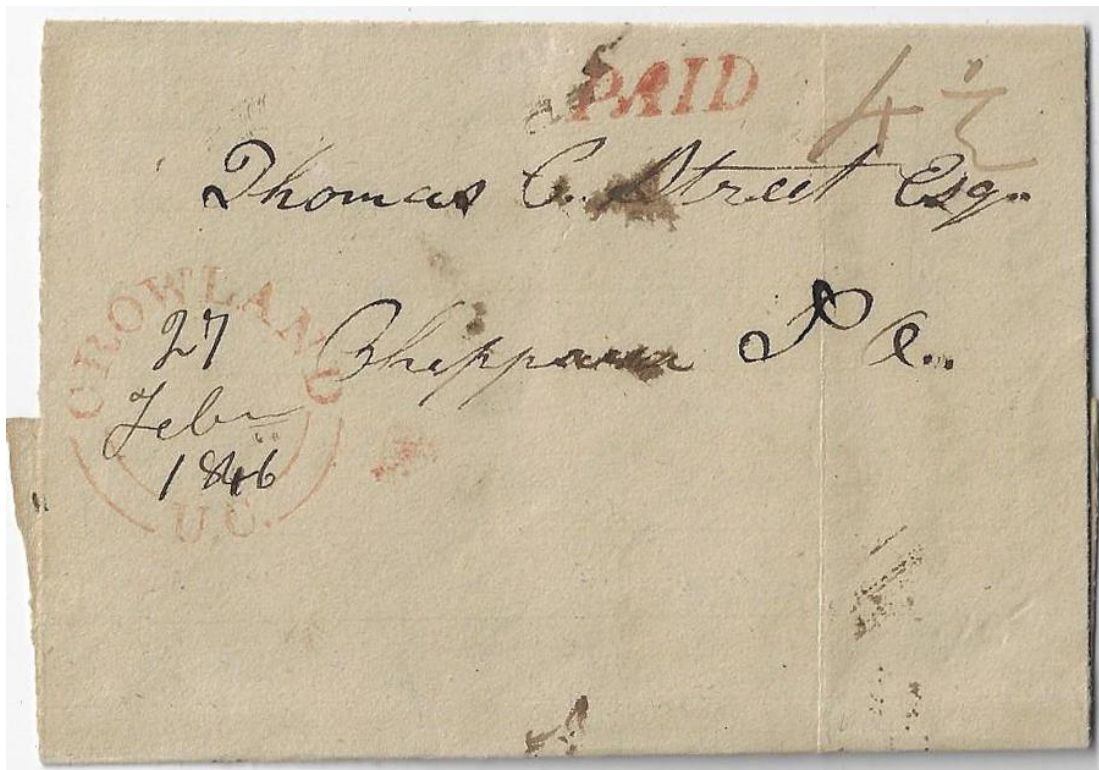 PAID
4½
Thomas C. Street Esq.
Chippawa P. O.
CROWLAND
27
Feby
1846
U.C.